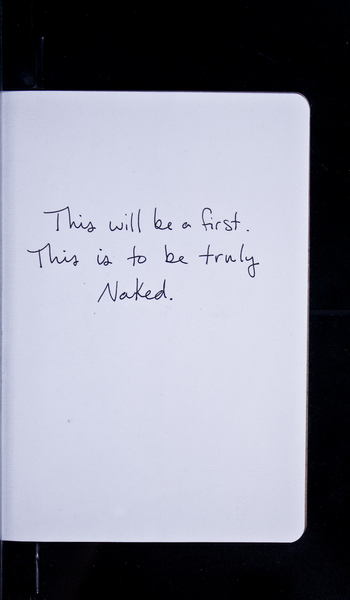 This will be a first.
This is to be truly
Naked.